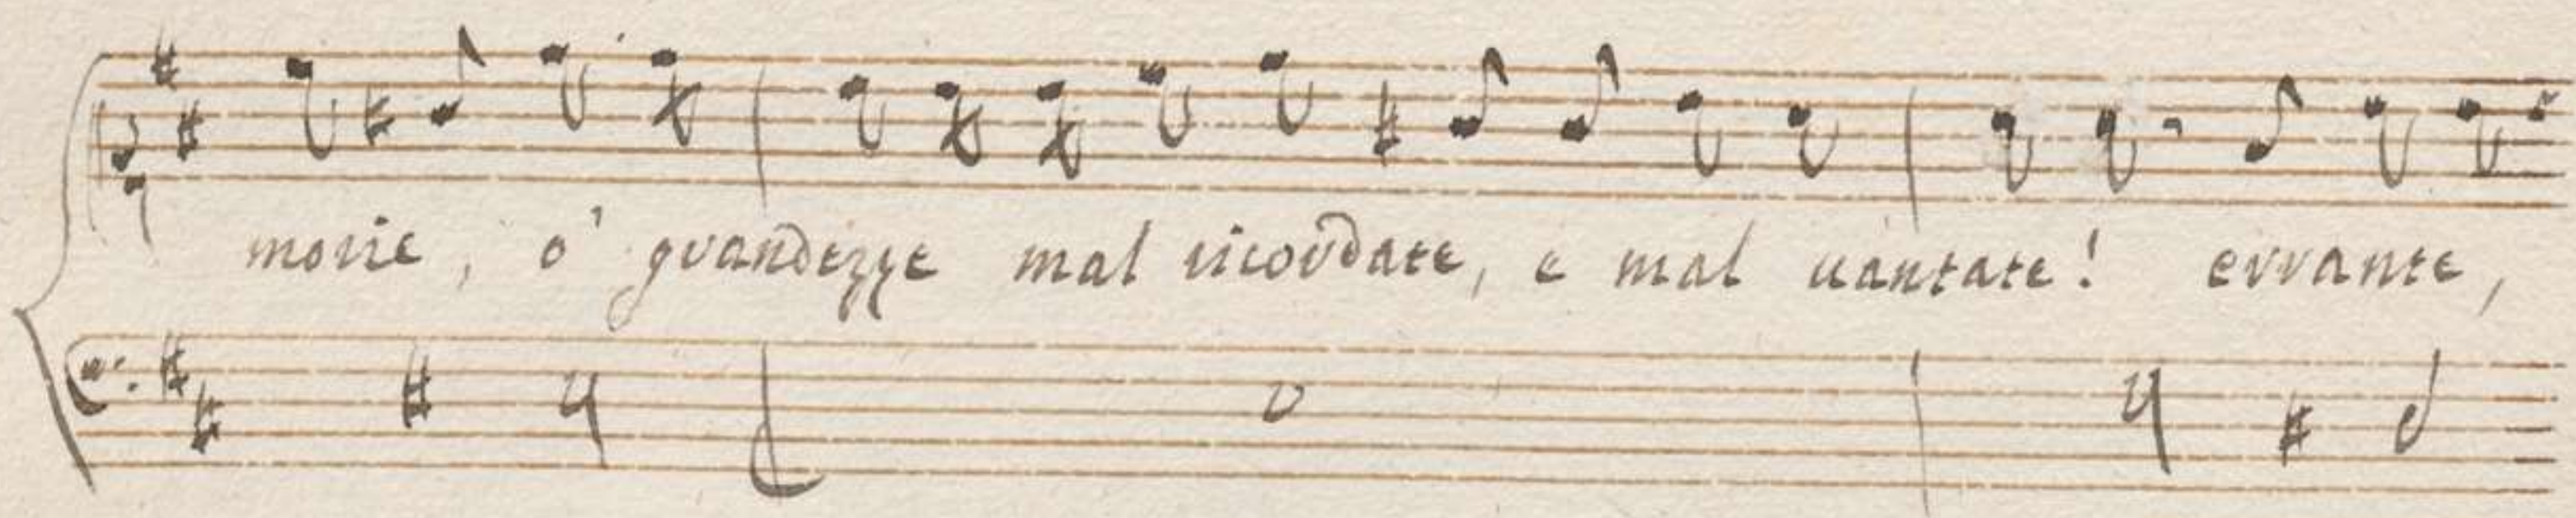 morie, o' grandezze mal ricordate, e mal uantate! errante,